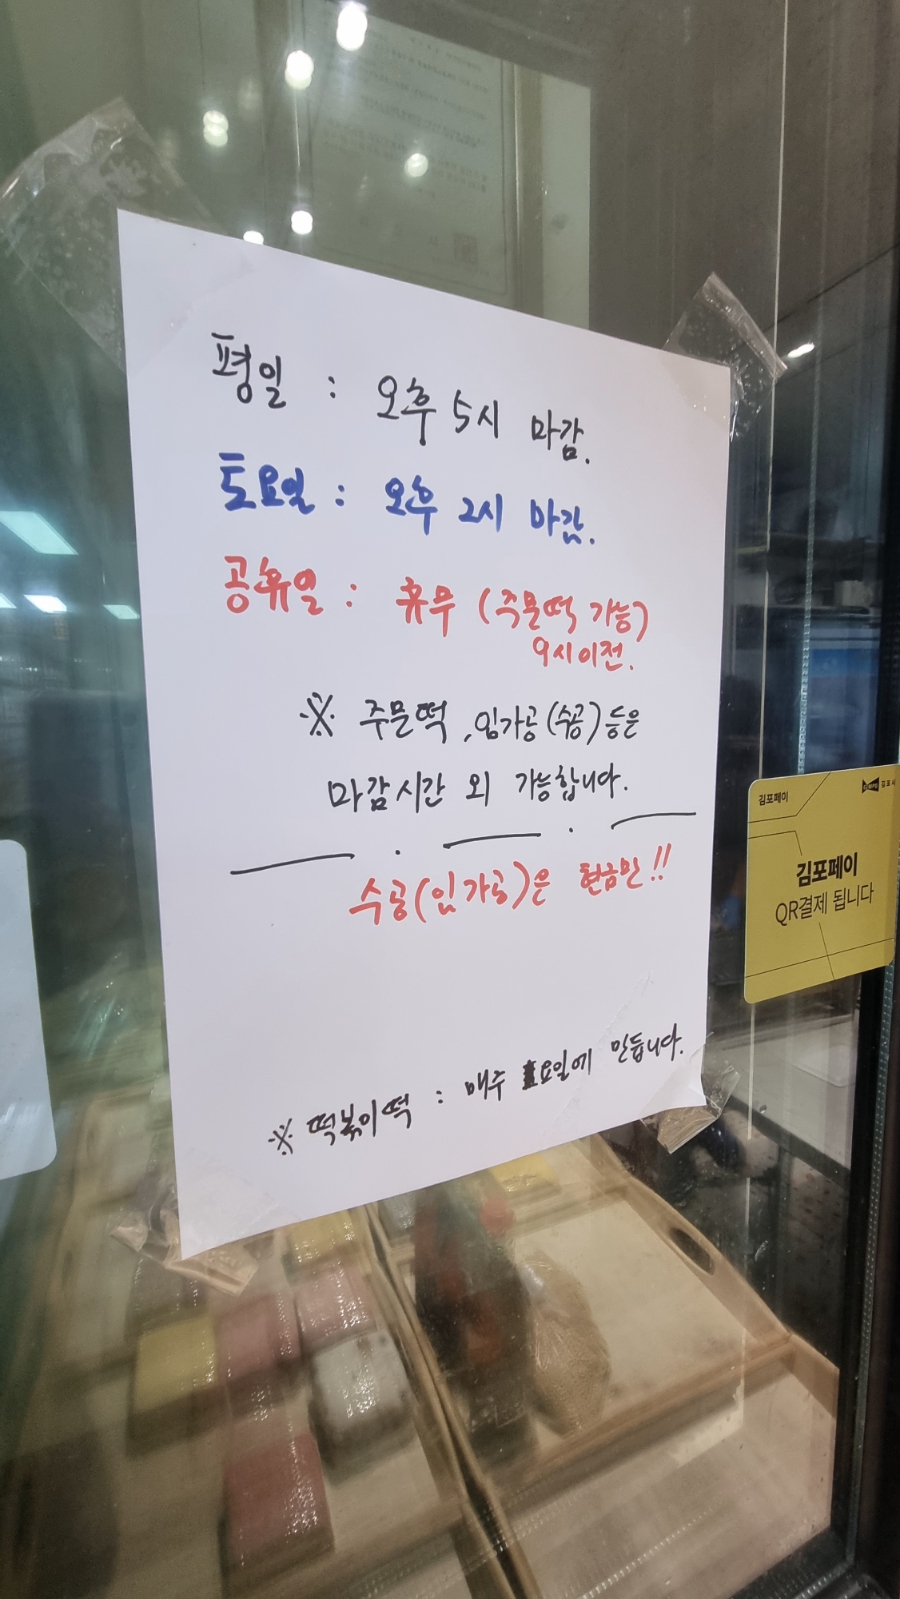 평일 : 오후 5시 마감.
토요일 : 오후 2시 마감.
공휴일 : 휴무 (주문떡 가능)
9시이전.
※ 주문떡, 임가공(수공)등은
마감시간 외 가능합니다.
수공(임가공)은 현금만!!
※ 떡볶이떡 : 매주 요일에 만듭니다.
김포페이
김포시
김포페이
QR결제 됩니다